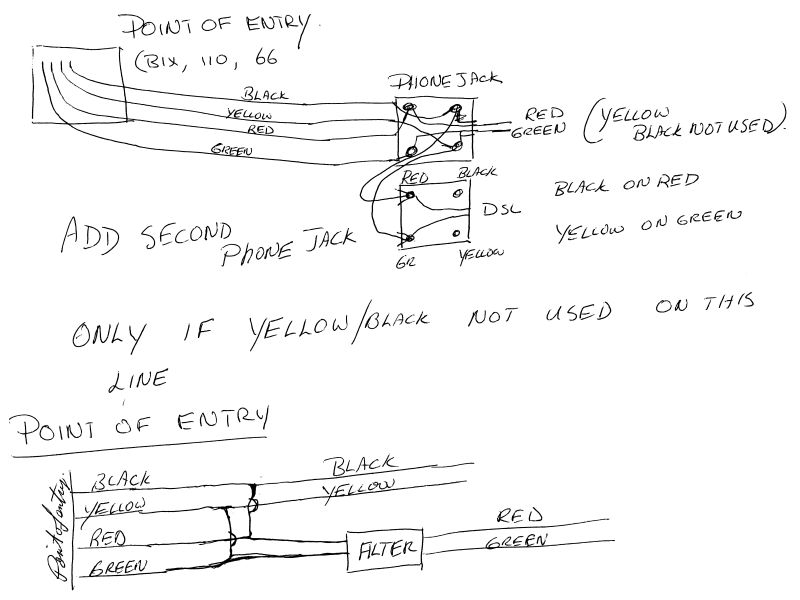 POINT OF ENTRY.
(BIX, 110, 66
PHONE JACK
BLACK
YELLOW
RED
GREEN
RED
GREEN
(YELLOW
BLACK NOT USED).
RED
BLACK
DSL
GR
YELLOW
BLACK ON RED
YELLOW ON GREEN
ADD SECOND
PHONE JACK
ONLY IF YELLOW/BLACK NOT USED ON THIS
LINE
POINT OF ENTRY
Point of entry.
BLACK
BLACK
YELLOW
YELLOW
RED
GREEN
FILTER
RED
GREEN